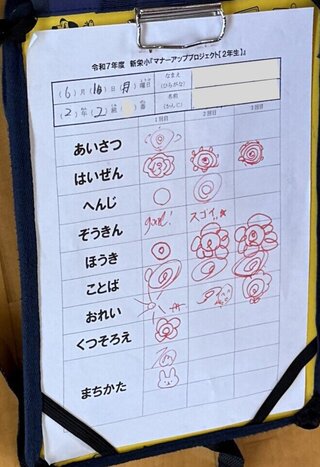 令和7年度 新栄小『マナーアッププロジェクト【2年生】』
(6)月(16)日(月)曜日
なまえ
(ひらがな)
(2)年(2)組( )番
名前
(かんじ)
1回目 2回目 3回目
あいさつ
はいぜん
へんじ
ぞうきん good! スゴイ!!
ほうき
ことば
おれい
くつそろえ
まちかた